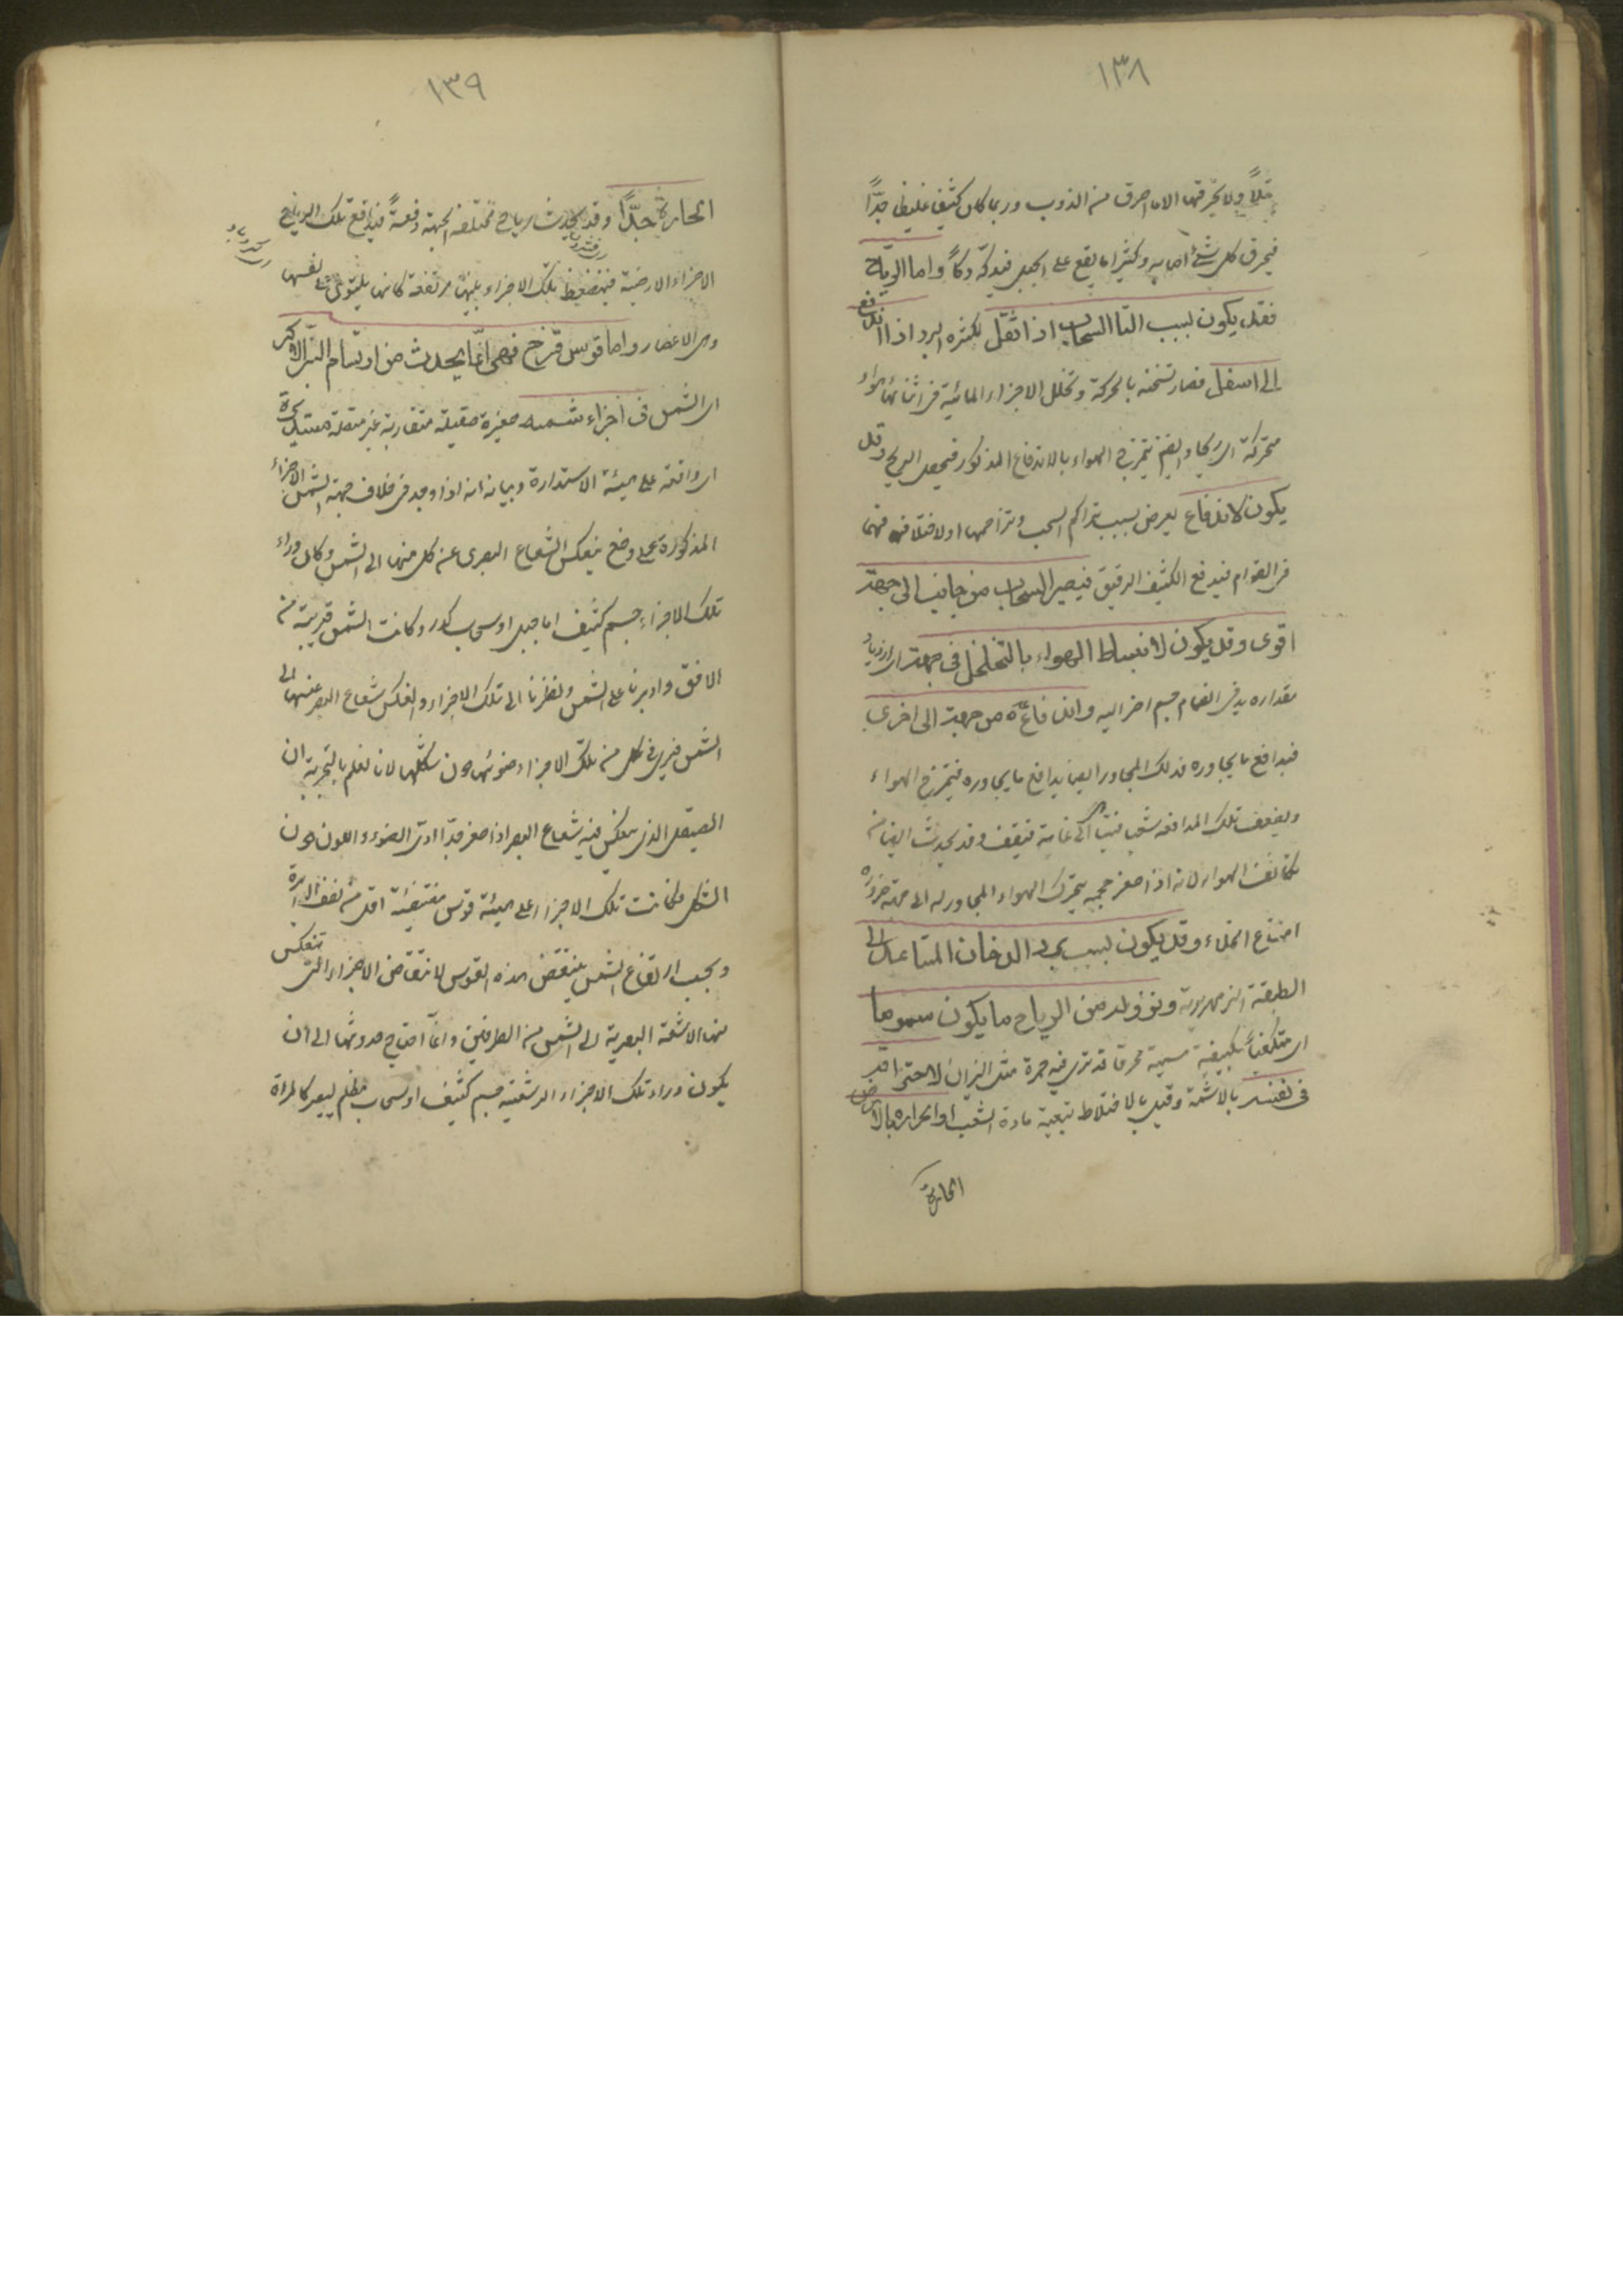 ١٣٨
ولا يحرقها الا ما احرق من الذوب وربما كان كثيفا غليظا جدًّا
فيحرق كل شئ اصابه وكثيرا ما يقع على الجبل فيدكه دكًّا واما الرياح
فقد يكون بسبب ان السحاب اذا ثقل لكثرة البرد اندفع
الى اسفل فصار تسخنه بالحركة وتخلل الاجزاء المائية فى اثنائها هواء
متحركة اى ريحا وايضا يتموج الهواء بالاندفاع المذكور فيحصل الريح وقد
يكون لاندفاع يعرض بسبب تراكم السحب وتزاحمها او لاختلافها
فى القوام فيدفع الكثيف الرقيق فيصير السحاب من جانب الى جهة
اقوى وقد يكون لانبساط الهواء بالتخلخل فى جهة اى ازدياد
مقداره بدون انضمام جسم اخر اليه واندفاعه من جهة الى اخرى
فيدافع ما يجاوره فذلك المجاور ايضا يدافع ما يجاوره فيتموج الهواء
ويضعف تلك المدافعة شيئا فشيئا الى غاية فتقف وقد يحدث ايضا من
تكاثف الهواء لانه اذا صغر حجمه يتحرك الهواء المجاور له الى جهته ضرورة
امتناع الخلاء وقد يكون بسبب برد الدخان المتصاعد الى
الطبقة الزمهريرية ونزوله من الرياح ما يكون سموما
اى متكيفا بكيفية سمية محرقا قد ترى فيه حمرة مثل النيران لاحتراقه
فى نفسه بالاشعة وقيل بالاختلاط ببقية مادة الشهب او لمروره بالارض
الحارة
١٣٩
الحارة جدًّا وقد يحدث رياح مختلفة الجهة دفعةً فيدافع تلك الرياح
الاجزاء الارضية فينضغط تلك الاجزاء بينها مرتفعة كانها يلتوى على نفسها
وهى الاعصار واما قوس قزح فهى انما يحدث من ارتسام النير الاكبر
اى الشمس فى اجزاء رشية صغيرة صقيلة متقاربة غير متصلة مستديرة
اى واقعة على هيئة الاستدارة وبيانه انه اذا وجد فى خلاف جهة الشمس الاجزاء
المذكورة على وضع ينعكس الشعاع البصرى عن كل منها الى الشمس وكان وراء
تلك الاجزاء جسم كثيف اما جبل او سحاب كدر وكانت الشمس قريبة من
الافق وادبرنا على الشمس ونظرنا الى تلك الاجزاء وانعكس شعاع البصر عنها الى
الشمس فنرى فى كل من تلك الاجزاء ضوئها دون شكلها لانا نعلم بالتجربة ان
الصيقل الذى ينعكس منه شعاع البصر اذا صغر جدا ادى الضوء واللون دون
الشكل وكانت تلك الاجزاء على هيئة قوس مقتضية اقل من نصف الدائرة
وبحسب ارتفاع الشمس ينتقص هذه القوس لانتقاض الاجزاء التى تنعكس
منها الاشعة البصرية الى الشمس من الطرفين وانما احتاج حدوثها الى ان
يكون وراء تلك الاجزاء الرشية جسم كثيف او سحاب مظلم ليصير كالمرآة